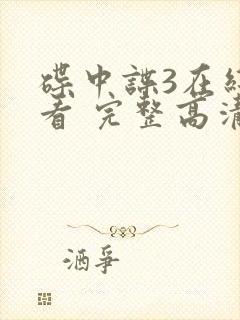 碟中諜3在
看 完整高清
酒爭